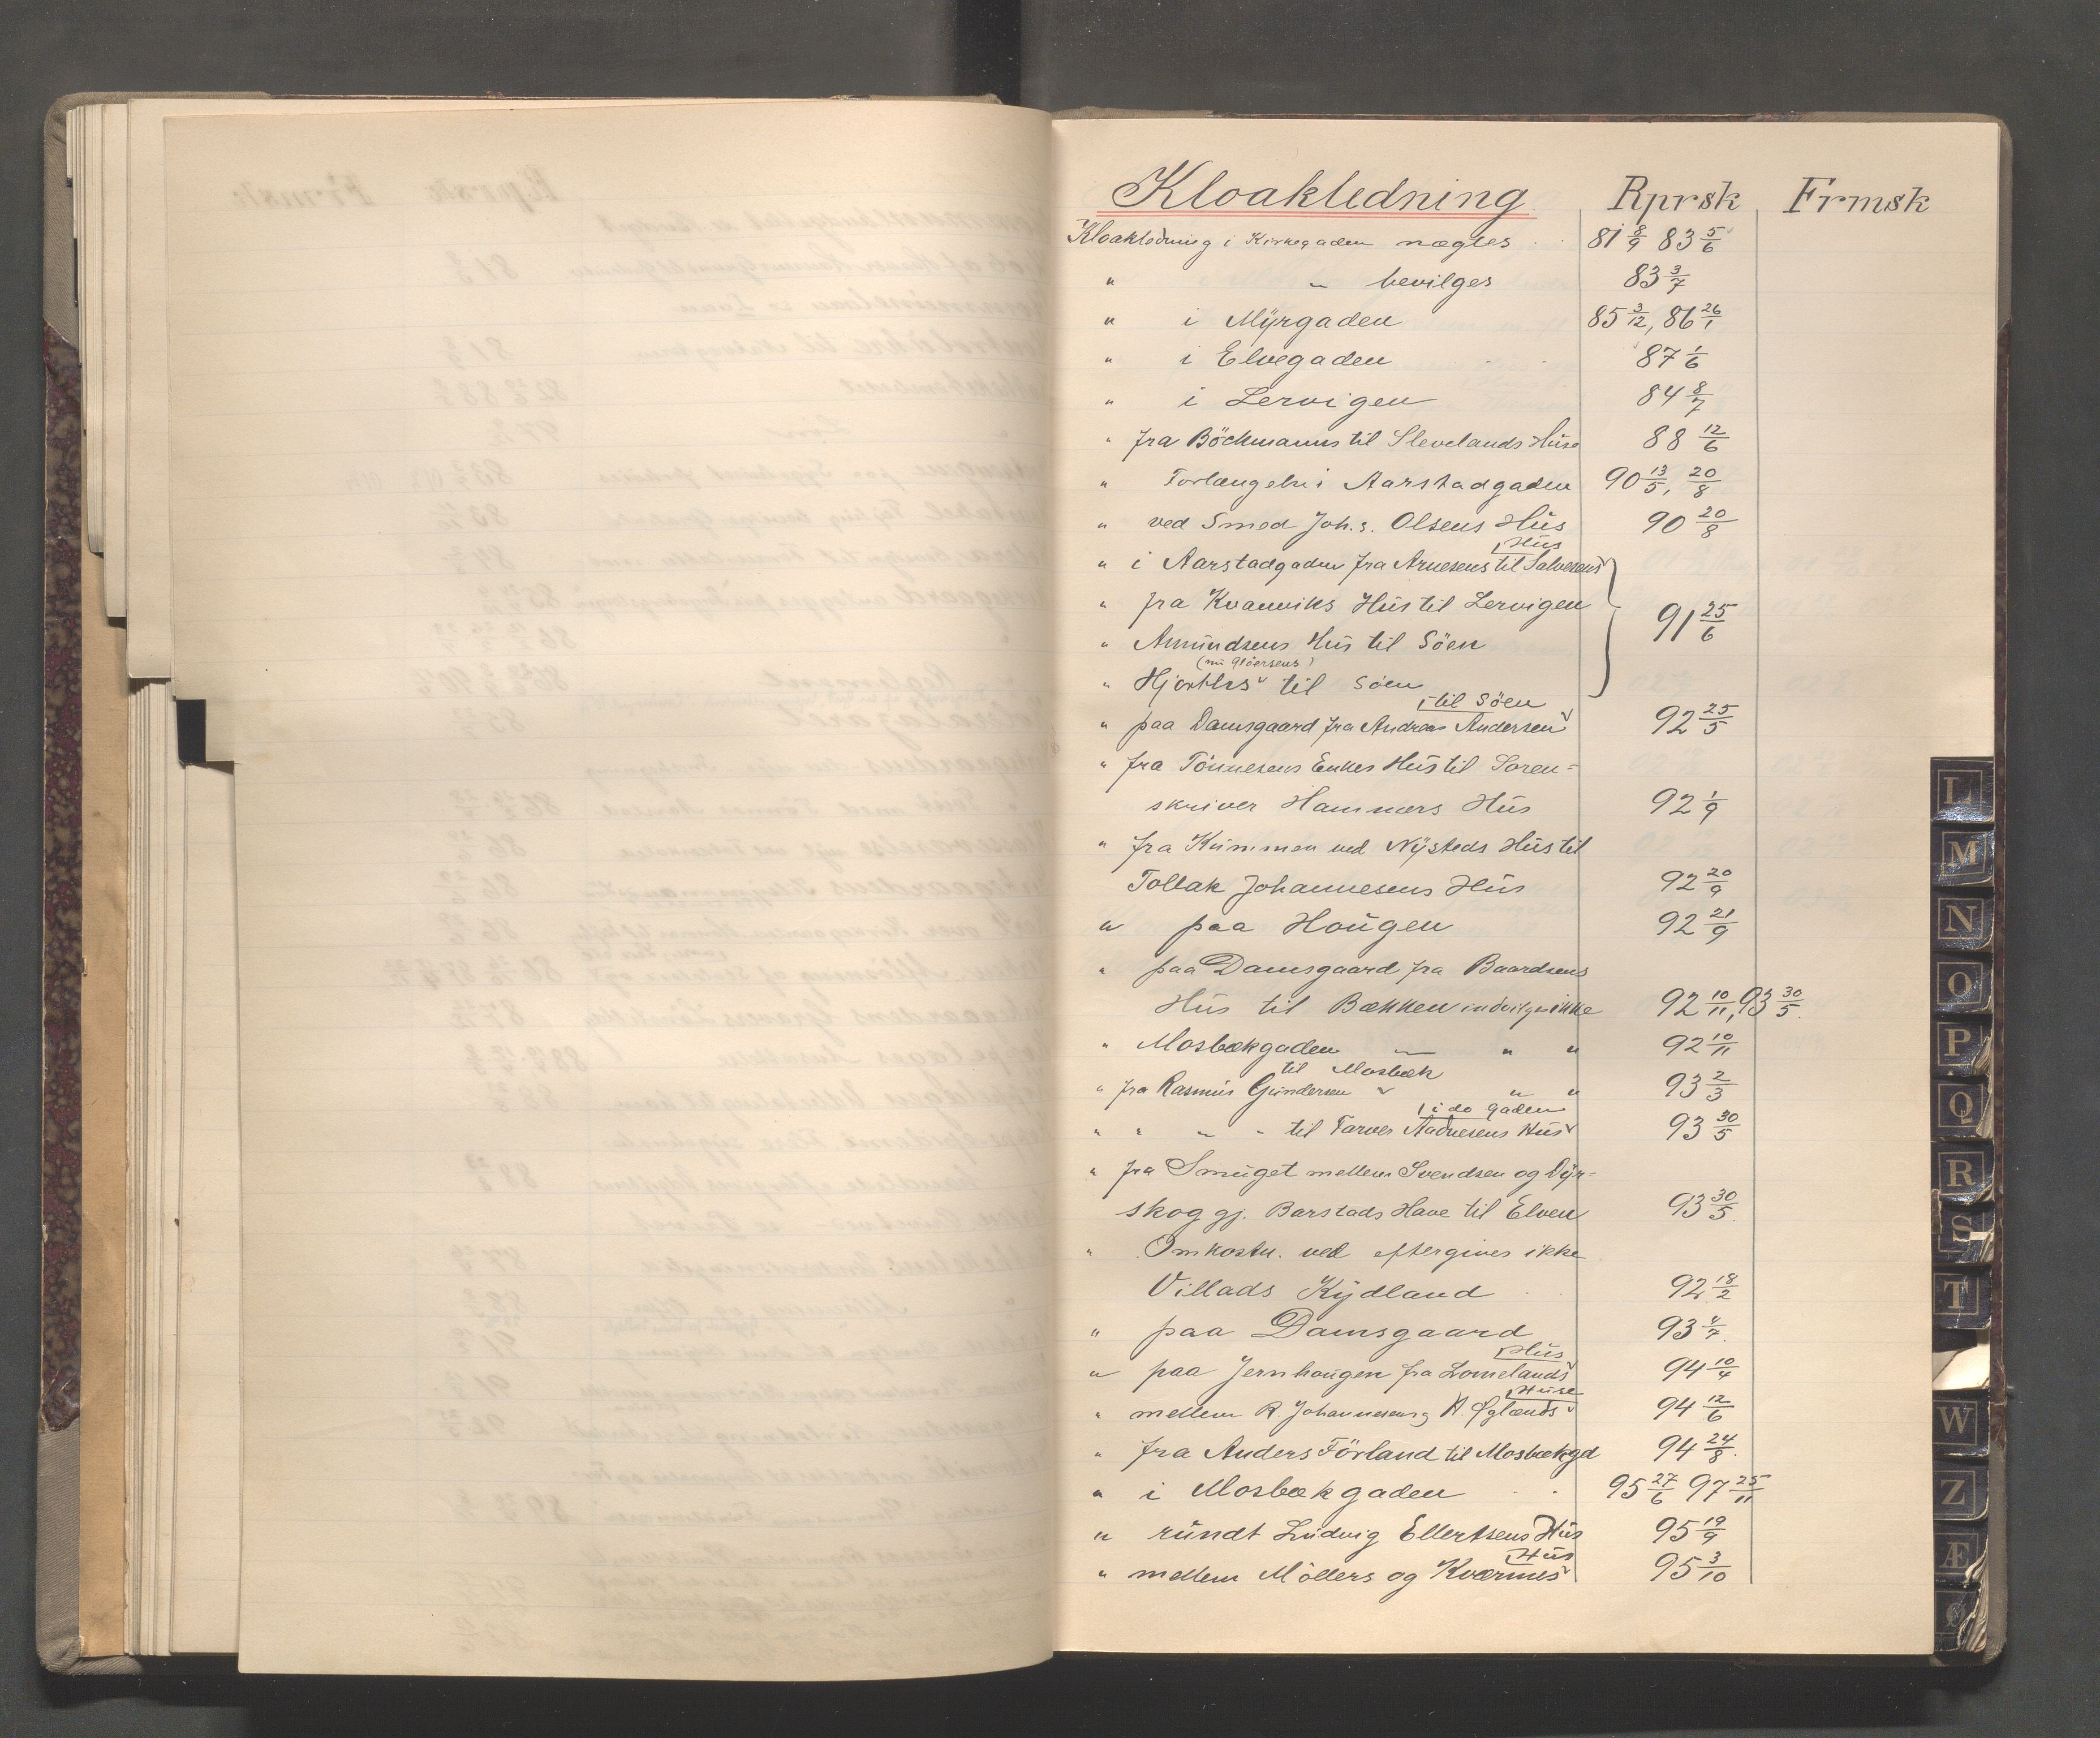 Kloakledning Rprsk Frmsk
Kloakledning i Kirkegaden nægtes . . 81 8/9 83 5/6
" " bevilges 83 3/7
" i Myrgaden 85 3/12, 86 26/1
" i Elvegaden . . 87 1/6
" i Lervigen 84 8/7
" fra Böckmanns til Slevelands Huse 88 12/6
" Forlængelse i Aarstadgaden 90 13/5, 20/8
" ved Smed Joh.s. Olsens Hus 90 20/8
" i Aarstadgaden fra Arnesens til Salvesens Hus
" fra Kvanviks Hus til Lervigen 91 25/6
" Amundsens Hus til Söen
" Hjorths (nu Glöersens) til Söen
" paa Damsgaard fra Andreas Andersen til Söen 92 25/5
" fra Tönnesens Enkes Hus til Soren=
skriver Hammers Hus 92 1/9
" fra Kummen ved Nysteds Hus til
Tollak Johannesens Hus 92 20/9
" paa Hougen 92 21/9
" paa Damsgaard fra Baardsens
Hus til Bækken indvilges ikke 92 10/11, 93 30/5.
" Mosbækgaden " " " 92 10/11
" fra Rasmus Gundersen til Mosbæk " " 93 2/3
" " " " til Farver Aadnesens Hus i do gaden 93 30/5
" fra Smuget mellem Svendsen og Dyr=
skog gj. Barstads Have til Elven 93 30/5.
" Omkostn. ved eftergives ikke
Villads Kydland . . 92 18/2
" paa Damsgaard 93 4/7.
" paa Jernhaugen fra Lomelands Hus 94 10/4
" mellem R. Johannesens A. Øglænds Huse 94 12/6
" fra Anders Förland til Mosbækgd 94 24/8.
" i Mosbækgaden . . 95 27/6 97 25/11
" rundt Ludvig Ellertsens Hus 95 19/9
" mellem Möllers og Kværnes Hus 95 3/10
L
M
N
O
P
Q
R
S
T
W
Z
Æ
Ø